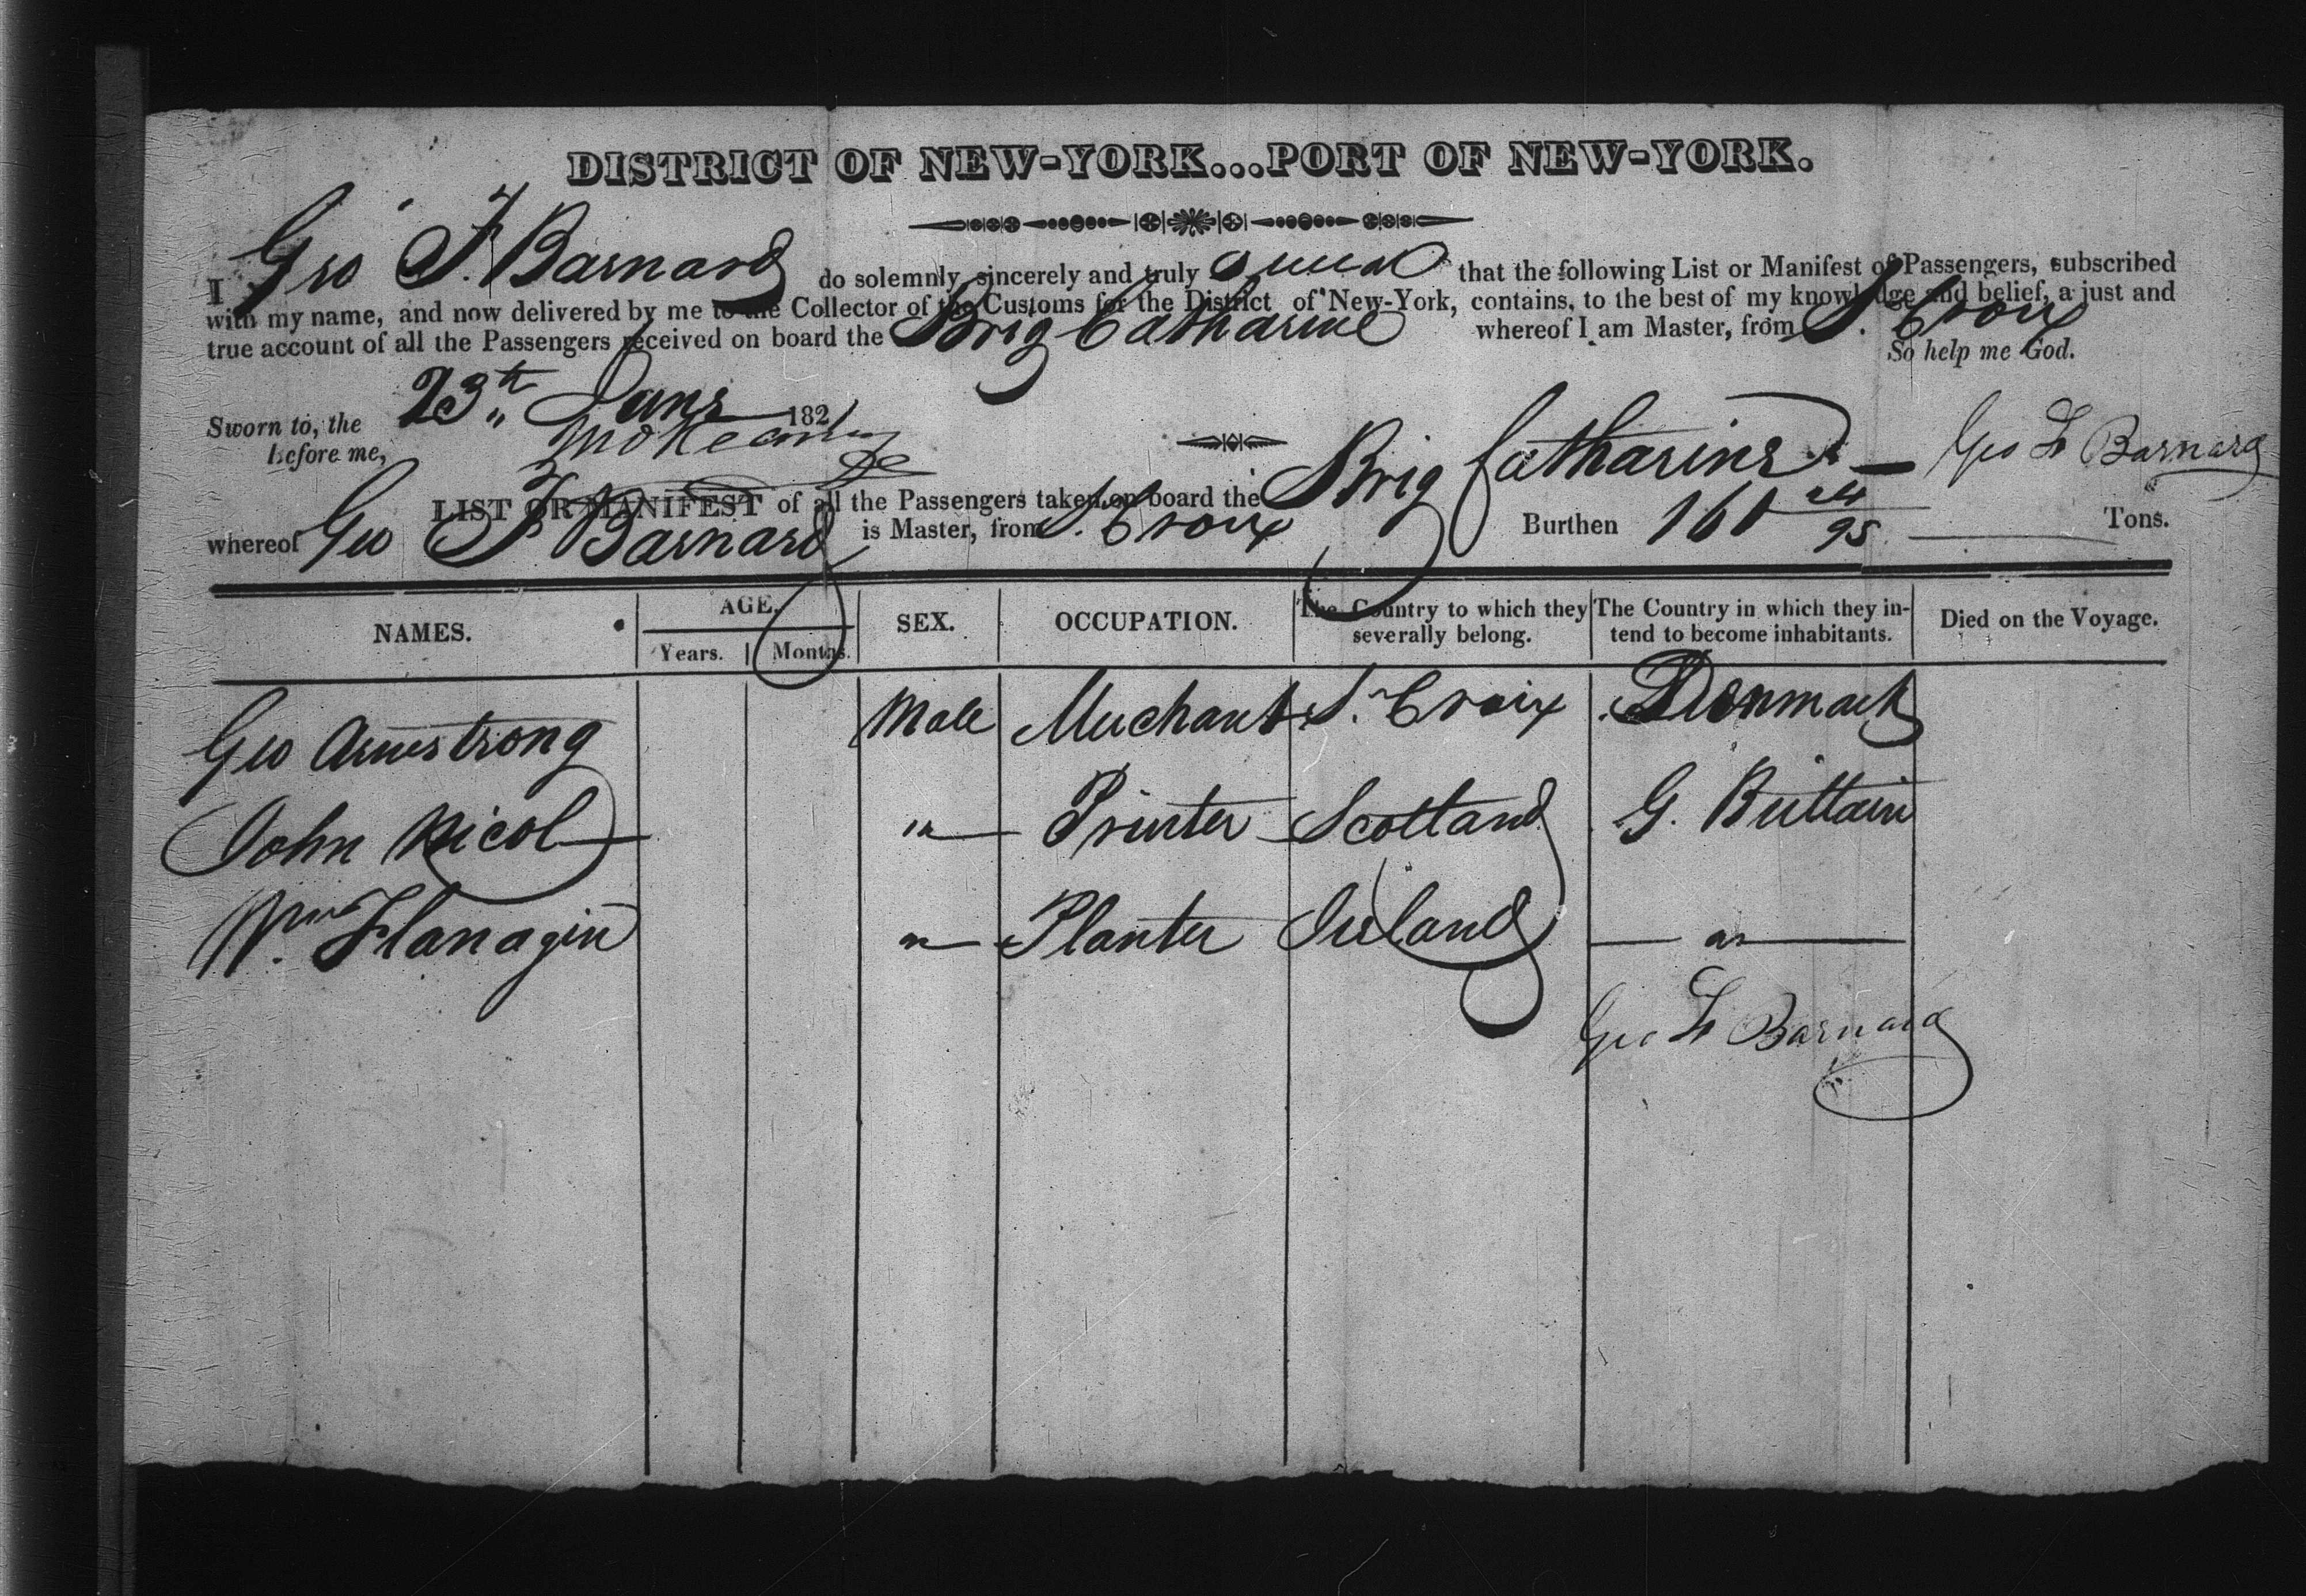 DISTRICT OF NEW-YORK...PORT OF NEW-YORK.
I Geo F. Barnard do solemnly, sincerely and truly swear that the following List or Manifest of Passengers, subscribed
with my name, and now delivered by me to the Collector of the Customs for the District of New-York, contains, to the best of my knowledge and belief, a just and
true account of all the Passengers received on board the Brig Catharine whereof I am Master, from St. Croix
So help me God.
Sworn to, the 23th 1821
before me,
Geo F Barnard
LIST OR MANIFEST of all the Passengers taken on board the Brig Catharine
whereof Geo F Barnard is Master, from St. Croix Burthen 161 24/95 Tons.
NAMES. AGE. SEX. OCCUPATION. The Country to which they severally belong. The Country in which they intend to become inhabitants. Died on the Voyage.
Years. Months.
Geo Armstrong Male Merchant St. Croix Denmark
John Nicol " Printer Scotland G. Brittain
Wm. Flanagin " Planter Ireland "
Geo F Barnard